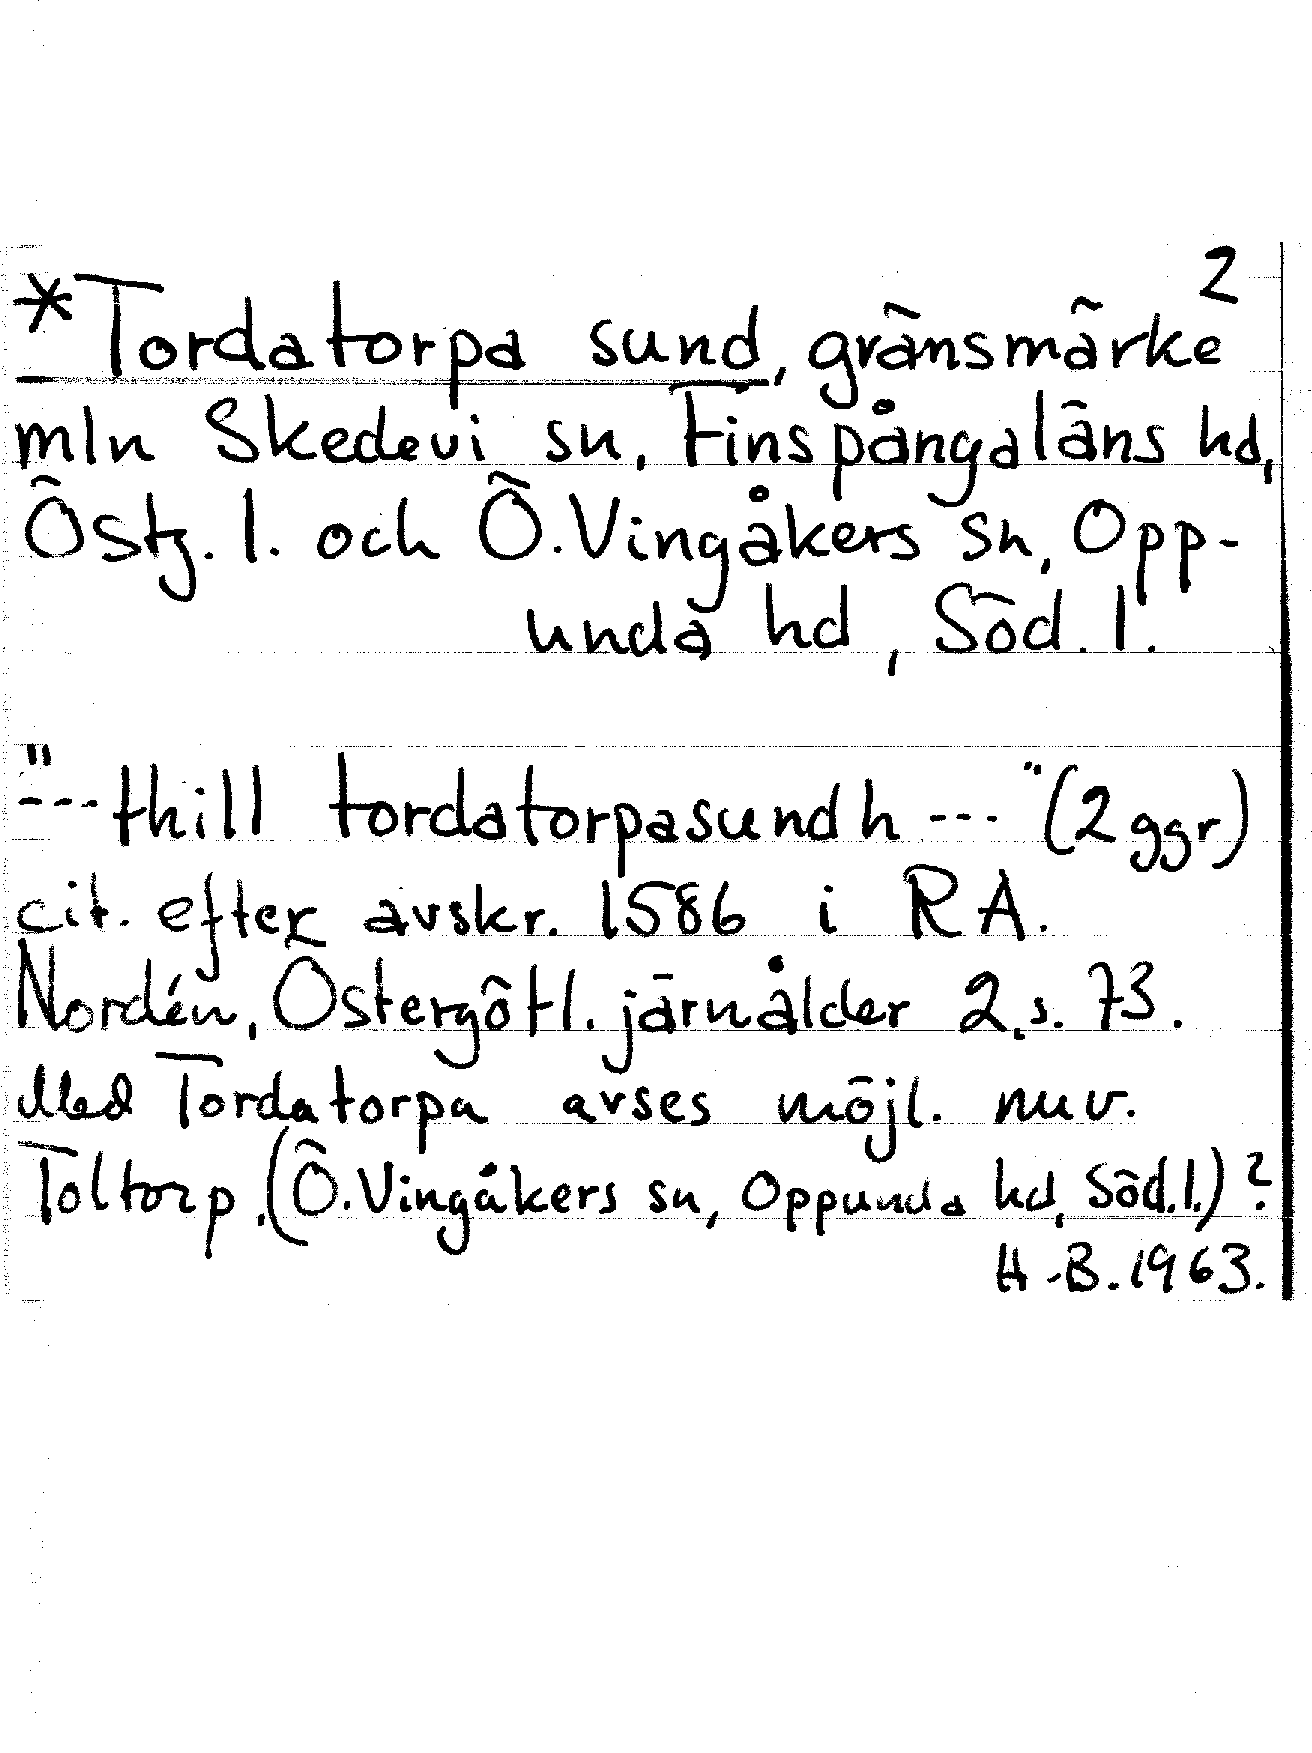 2
*Tordatorpa sund, gränsmärke
mln Skedevi sn, Finspångaläns hd,
Östg. l. och Ö. Vingåkers sn, Opp-
unda hd, Söd. l.
"---thill tordatorpasundh ---" (2 ggr)
cit. efter avskr. 1586 i RA.
Nordén, Östergötl. järnålder 2, s. 73.
Med Tordatorpa avses möjl. nuv.
Toltorp, (Ö. Vingåkers sn, Oppunda hd, Söd. l.)?
H-B. 1963.